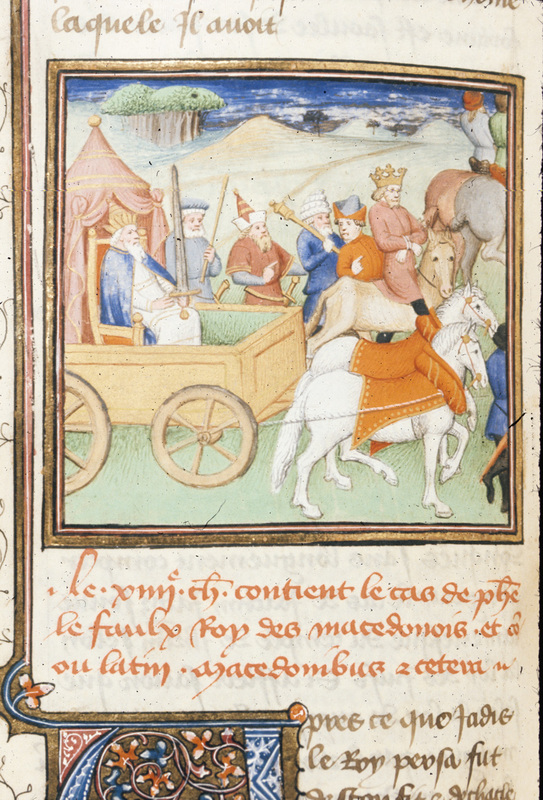 laquele Il auoit
Le xiiii.e ch. contient le cas de phe
le faulx Roy des macedonois. et cō
ou latin. Macedonibus ⁊ cetera
pres ce que Jadis
le Roy persa fut